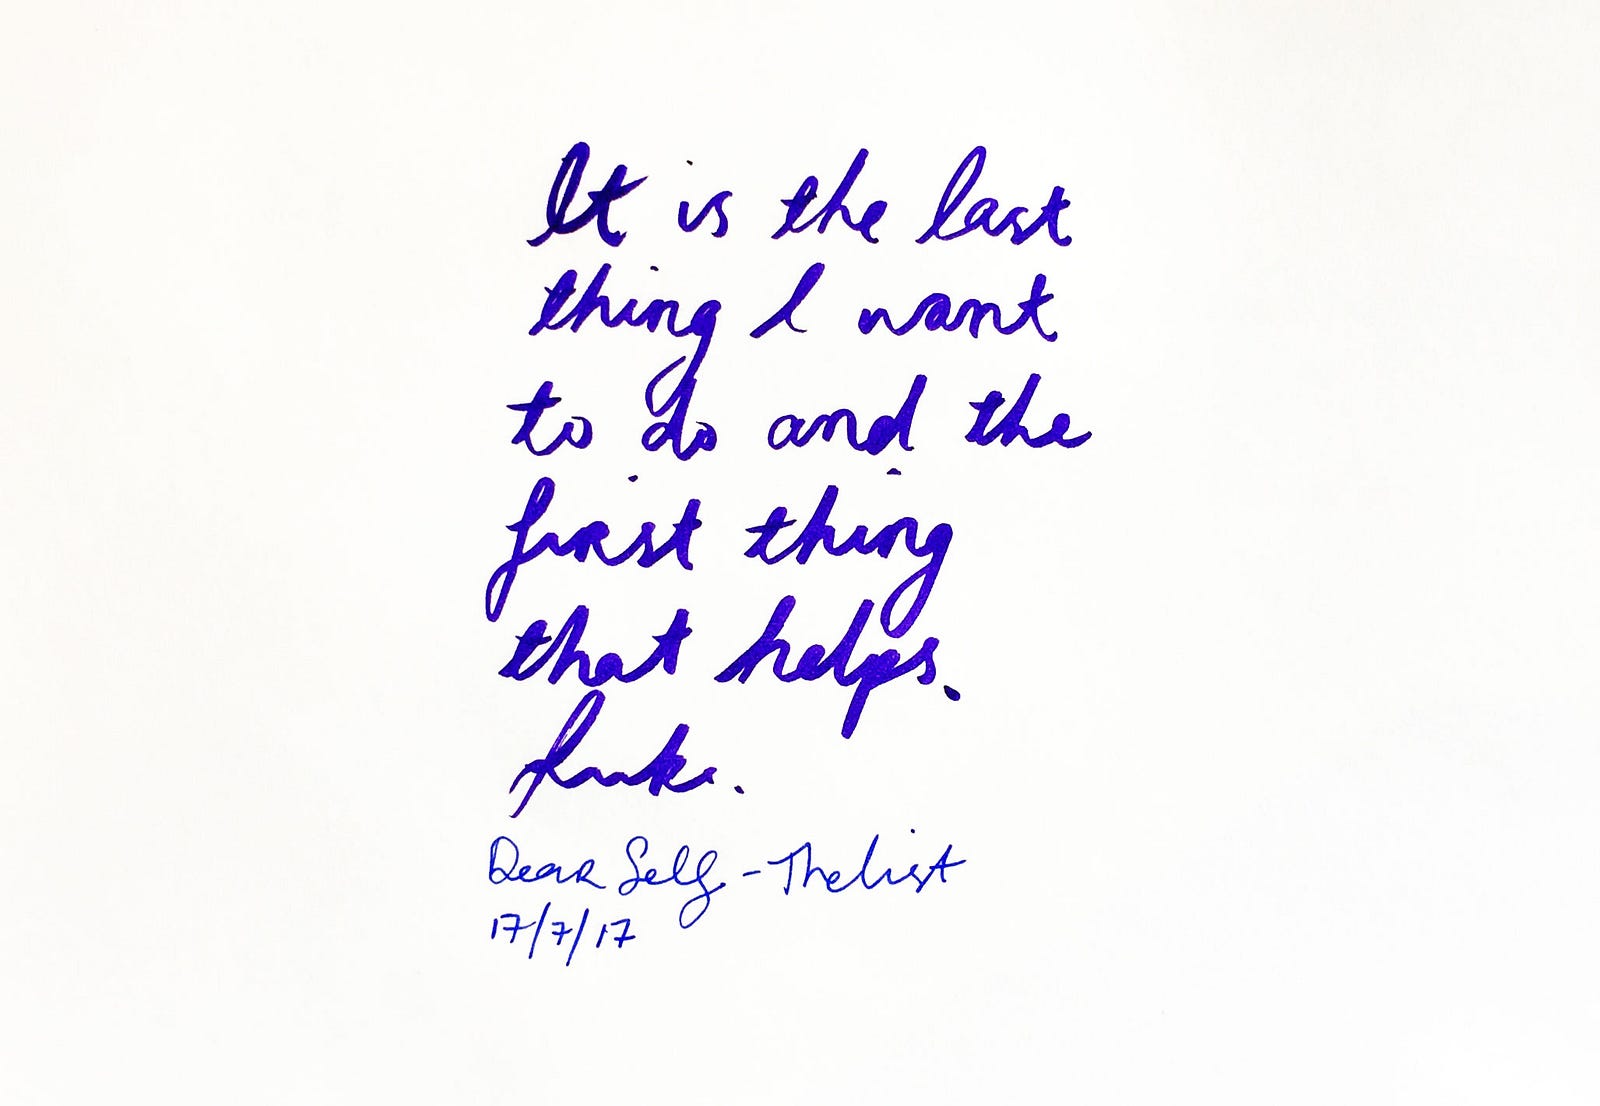 It is the last
thing I want
to do and the
first thing
that helps.
Dear Self - The List
17/7/17